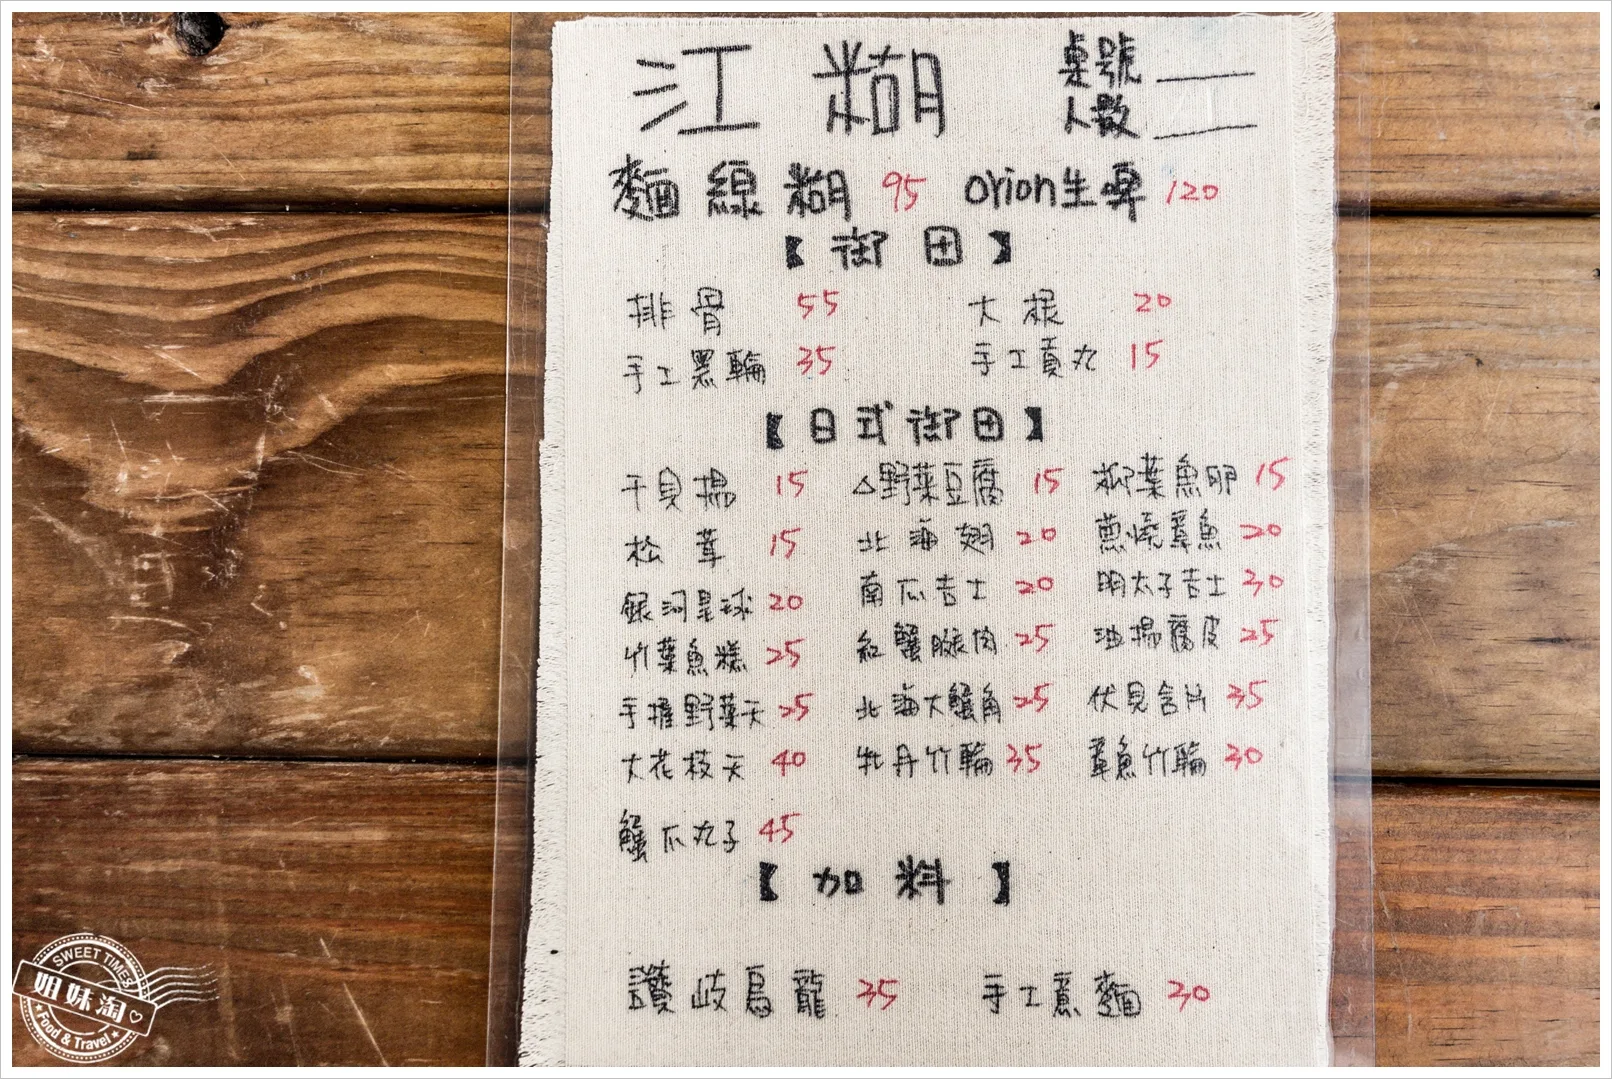 江糊 桌號
人數
麵線糊 95 orion生啤 120
【御田】
排骨 55 大根 20
手工黑輪 35 手工貢丸 15
【日式御田】
干貝揚 15 △野菜豆腐 15 柳葉魚卵 15
松茸 15 北海翅 20 蔥燒章魚 20
銀河星球 20 南瓜吉士 20 明太子吉士 30
竹葉魚糕 25 紅蟹腿肉 25 油揚腐皮 25
手握野菜天 25 北海大蟹角 25 伏見含片 35
大花枝天 40 牡丹竹輪 35 章魚竹輪 30
蟹爪丸子 45
【加料】
讚岐烏龍 35 手工意麵 30
SWEET TIMES
姐妹淘
Food & Travel